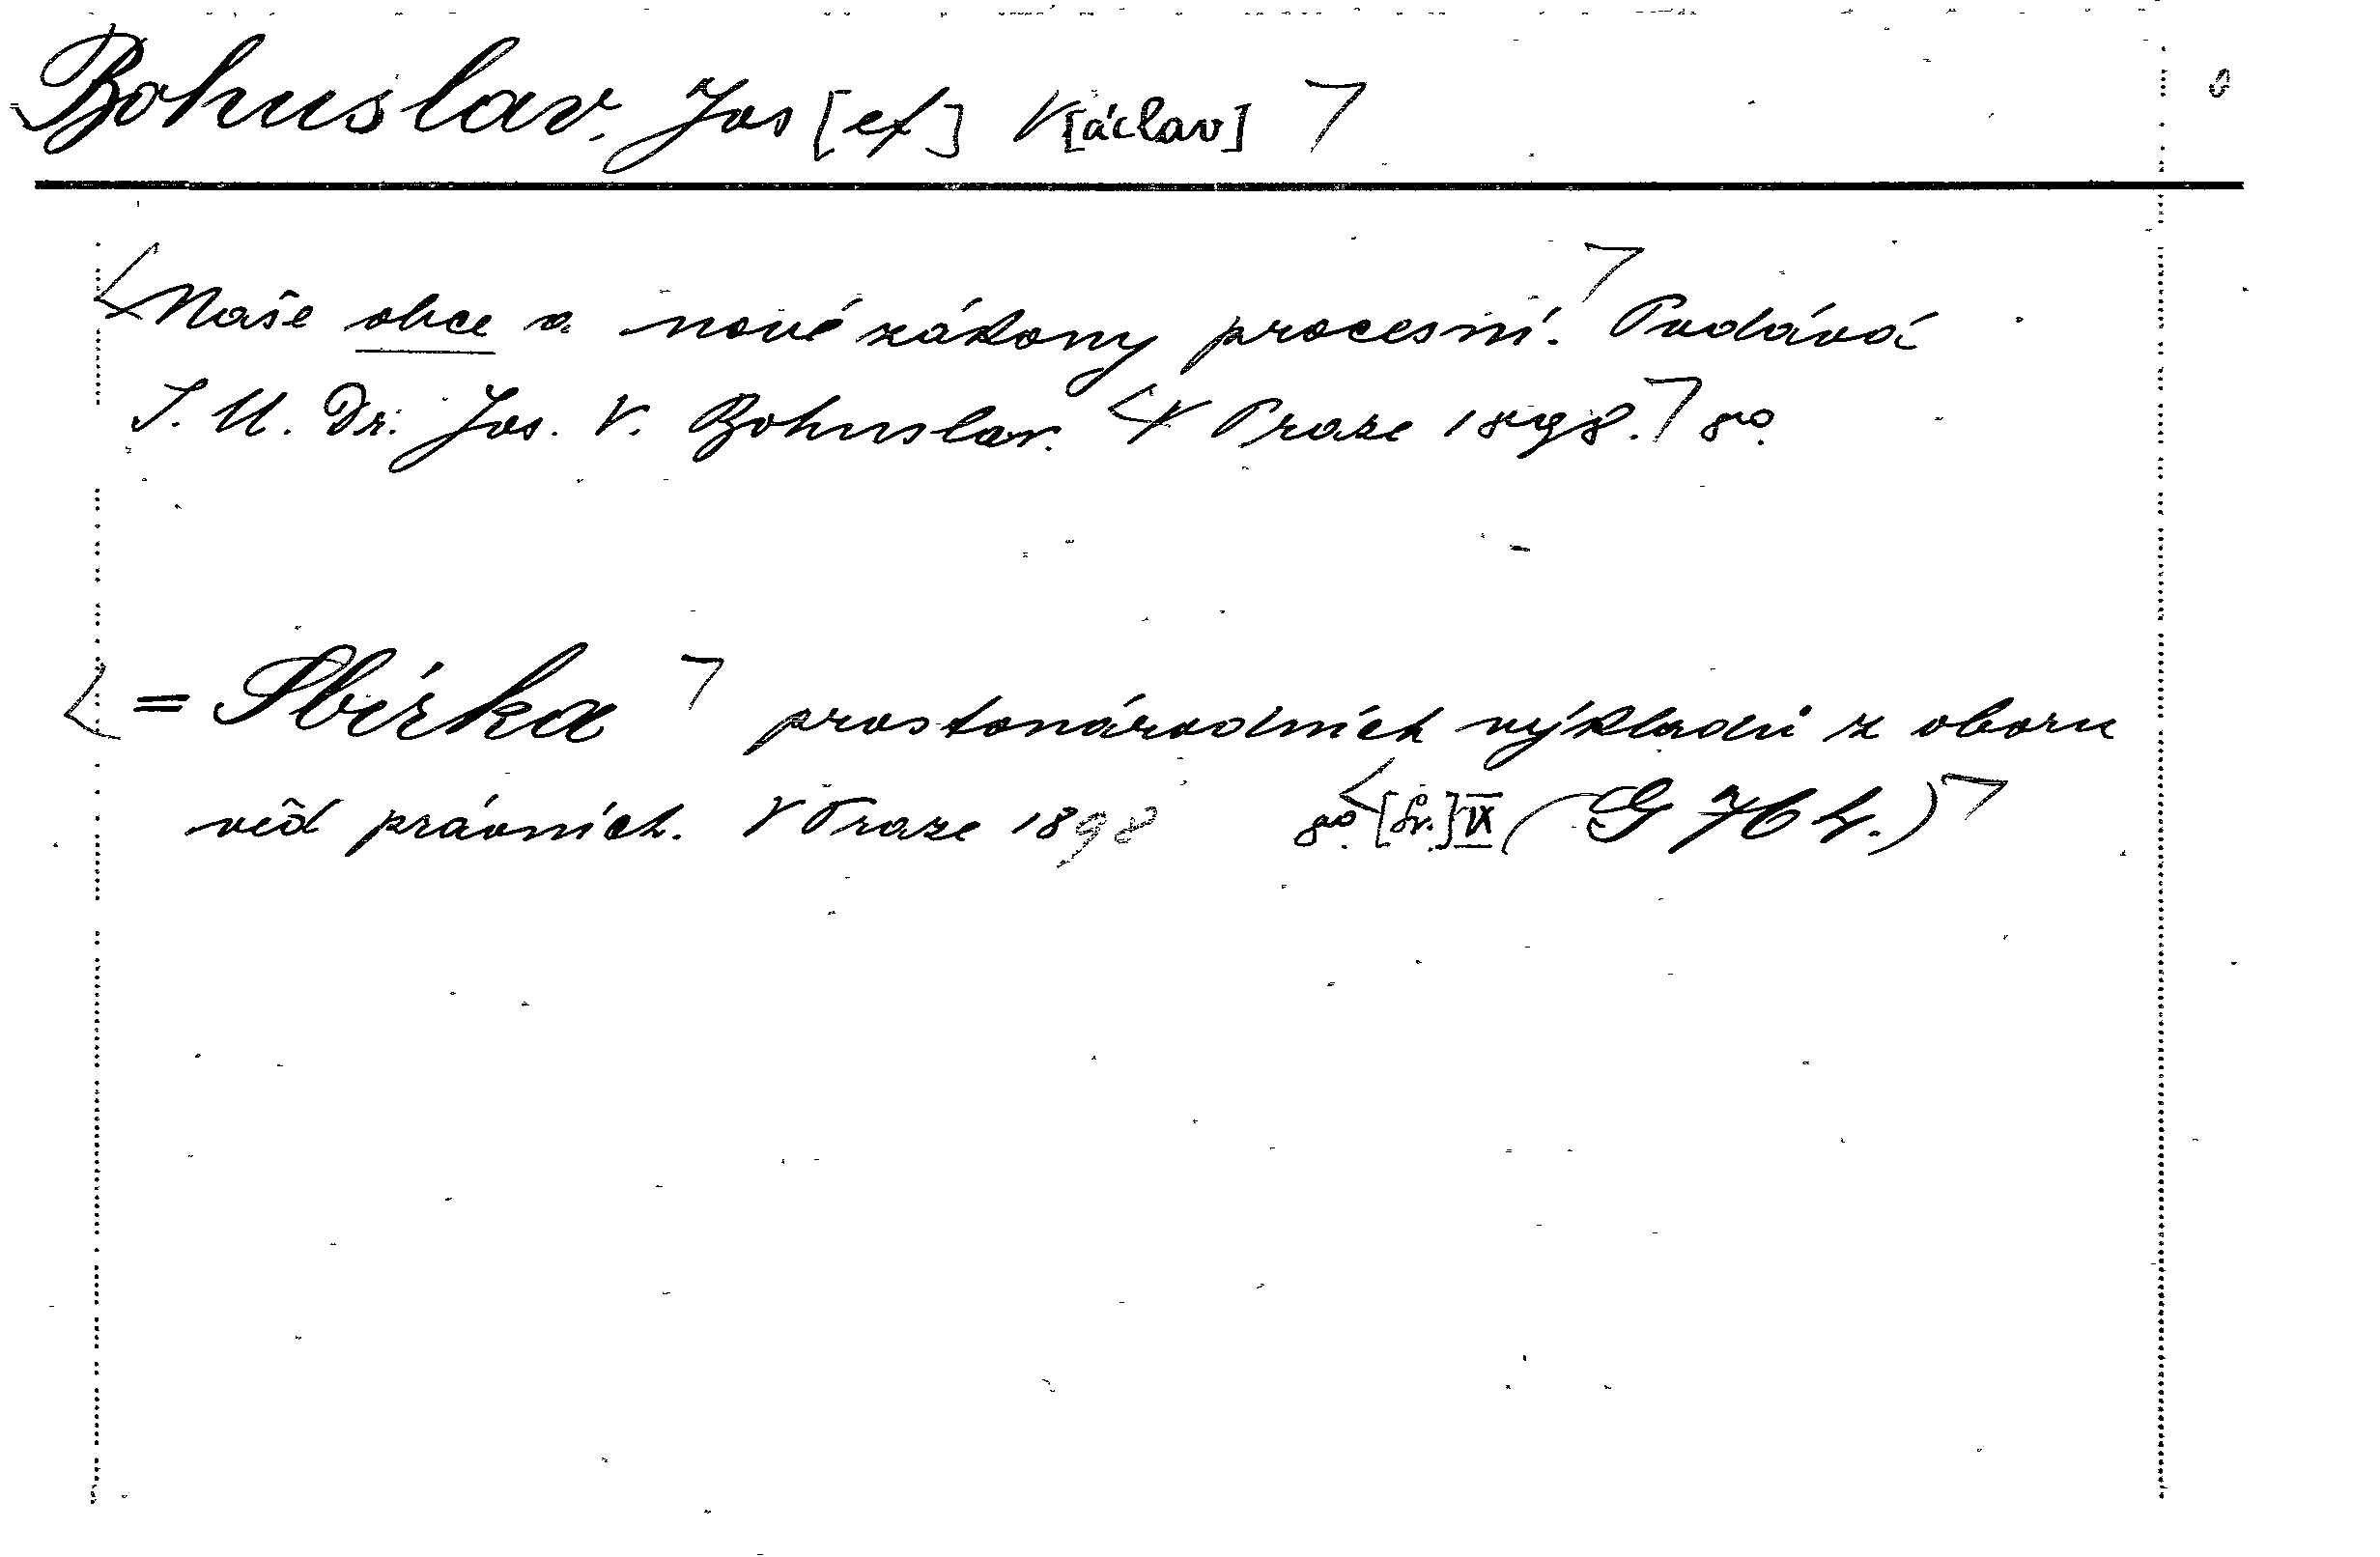 Bohuslav, Jos[ef] V[áclav]
Naše obce a nové zákony procesní. Podává
J. U. Dr. Jos. V. Bohuslav. V Praze 1898. 8º.
= Sbírka prostonárodních výkladů z oboru
věd právních. V Praze 1898 8º. [Sv.] IX (G 764.)